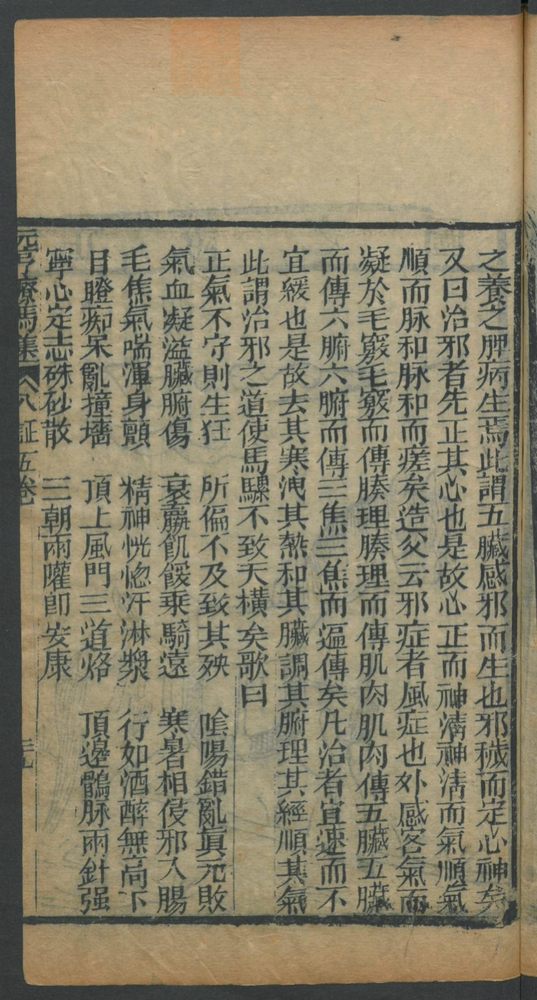 之養之脾病生焉此謂五臟感邪而生也邪穢而定心神失
又曰治邪者先正其心也是故心正而神清神清而氣順氣
順而脉和脉和而瘥矣造父云邪症者風症也外感客氣而
凝於毛竅毛竅而傳腠理腠理而傳肌肉肌肉傳五臟五臟
而傳六腑六腑而傳三焦三焦而遍傳矣凡治者宜速而不
宜緩也是故去其寒洩其熱和其臟調其腑理其經順其氣
此謂治邪之道使馬騾不致夭橫矣歌曰
正氣不守則生狂 所傷不及致其殃 陰陽錯亂眞元敗
氣血凝滋臟腑傷 衰羸飢餒乘騎遠 寒暑相侵邪入腸
毛焦氣喘渾身顫 精神恍惚汗淋漿 行如酒醉無高下
目瞪痴呆亂撞墻 頂上風門三道烙 頂邊鶻脉兩針强
寧心定志硃砂散 三朝兩灌卽安康
元亨療馬集 八証五卷 三九